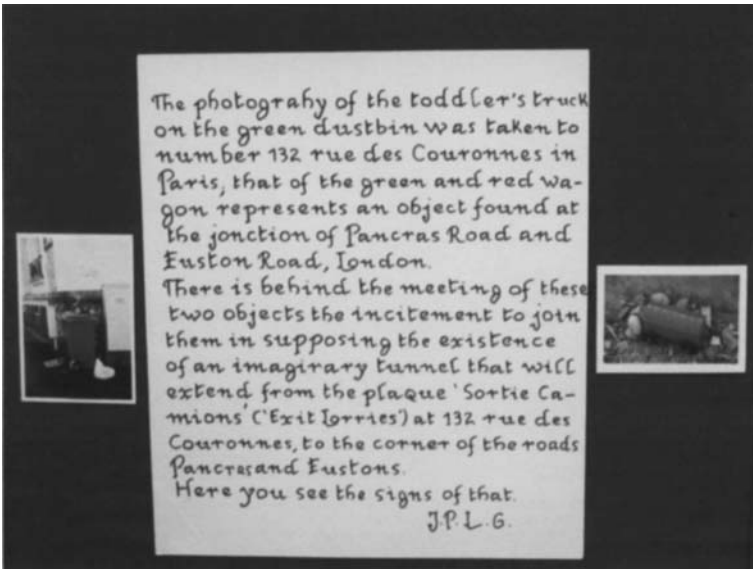 The photograhy of the toddler's truck
on the green dustbin was taken to
number 132 rue des Couronnes in
Paris, that of the green and red wa-
gon represents an object found at
the jonction of Pancras Road and
Euston Road, London.
There is behind the meeting of these
two objects the incitement to join
them in supposing the existence
of an imagirary tunnel that will
extend from the plaque 'Sortie Ca-
mions' ('Exit Lorries') at 132 rue des
Couronnes, to the corner of the roads
Pancras and Eustons.
Here you see the signs of that.
J.P.L.G.